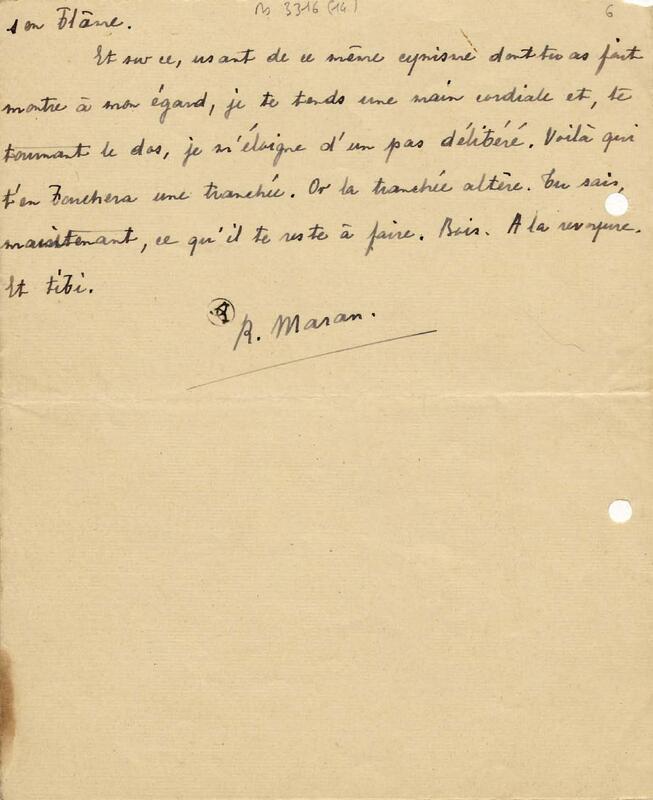 Ms 3316 (14) 6
son blâme.
Et sur ce, usant de ce même cynisme dont tu as fait
montre à mon égard, je te tends une main cordiale et, te
tournant le dos, je m'éloigne d'un pas délibéré. Voilà qui
t'en bouchera une tranchée. Or la tranchée altère. Tu sais,
maintenant, ce qu'il te reste à faire. Bois. A la revoyure.
Et tibi.
R. Maran.